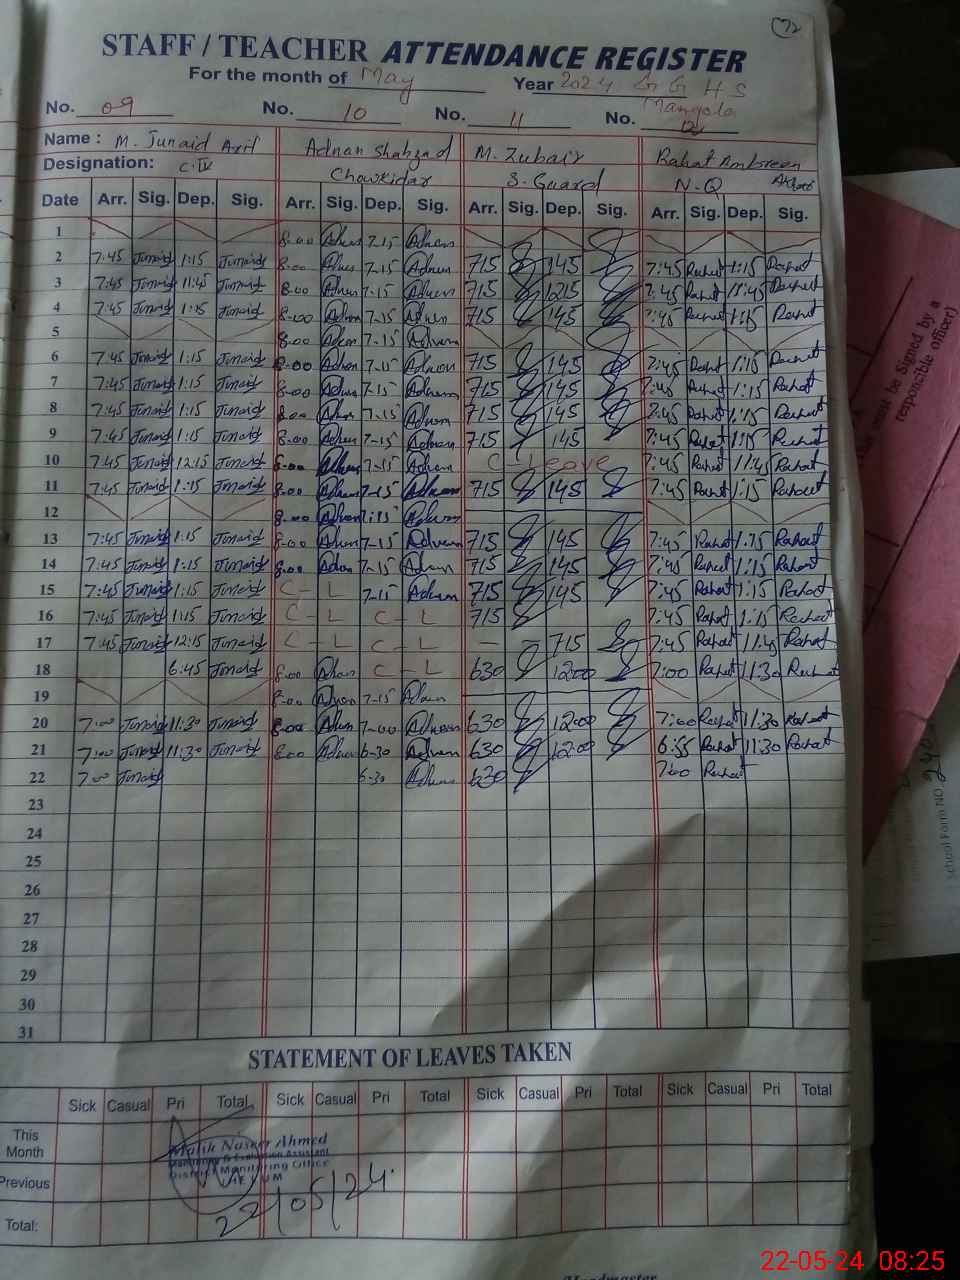 72
STAFF / TEACHER ATTENDANCE REGISTER
For the month of May Year 2024 G G H S
Mangola
No. 09 No. 10 No. 11 No. 12
Name : M. Junaid Arif Adnan Shahzad M. Zubair Rahat Ambreen
Designation: C-IV Chowkidar S. Guard N-Q
Date Arr. Sig. Dep. Sig. Arr. Sig. Dep. Sig. Arr. Sig. Dep. Sig. Arr. Sig. Dep. Sig.
1 8-00 Adnan 7-15 Adnan
2 7:45 Junaid 1:15 Junaid 8-00 Adnan 7-15 Adnan 715 145 7:45 Rahat 1:15 Rahat
3 7:45 Junaid 11:45 Junaid 8-00 Adnan 7-15 Adnan 715 1215 7:45 Rahat 11:45 Rahat
4 7:45 Junaid 1:15 Junaid 8-00 Adnan 7-15 Adnan 715 145 7:45 Rahat 1:15 Rahat
5 8-00 Adnan 7-15 Adnan
6 7:45 Junaid 1:15 Junaid 8-00 Adnan 7-15 Adnan 715 145 7:45 Rahat 1:15 Rahat
7 7:45 Junaid 1:15 Junaid 8-00 Adnan 7-15 Adnan 715 145 7:45 Rahat 1:15 Rahat
8 7:45 Junaid 1:15 Junaid 8-00 Adnan 7-15 Adnan 715 145 7:45 Rahat 1:15 Rahat
9 7:45 Junaid 1:15 Junaid 8-00 Adnan 7-15 Adnan 715 145 7:45 Rahat 1:15 Rahat
10 7:45 Junaid 12:15 Junaid 8-00 Adnan 7-15 Adnan C-Leave 7:45 Rahat 11:45 Rahat
11 7:45 Junaid 1:15 Junaid 8-00 Adnan 7-15 Adnan 715 145 7:45 Rahat 1:15 Rahat
12 8-00 Adnan 7-15 Adnan
13 7:45 Junaid 1:15 Junaid 8-00 Adnan 7-15 Adnan 715 145 7:45 Rahat 1:15 Rahat
14 7:45 Junaid 1:15 Junaid 8-00 Adnan 7-15 Adnan 715 145 7:45 Rahat 1:15 Rahat
15 7:45 Junaid 1:15 Junaid C - L 7-15 Adnan 715 145 7:45 Rahat 1:15 Rahat
16 7:45 Junaid 1:15 Junaid C - L C - L 715 7:45 Rahat 1:15 Rahat
17 7:45 Junaid 12:15 Junaid C - L C - L - - 715 7:45 Rahat 11:45 Rahat
18 6:45 Junaid 8-00 Adnan C - L 630 1200 7:00 Rahat 11:30 Rahat
19 8-00 Adnan 7-15 Adnan
20 7:00 Junaid 11:30 Junaid 8-00 Adnan 7-00 Adnan 630 1200 7:00 Rahat 11:30 Rahat
21 7:00 Junaid 11:30 Junaid 8-00 Adnan 6-30 Adnan 630 1200 6:55 Rahat 11:30 Rahat
22 7:00 Junaid 6-30 Adnan 630 7:00 Rahat
23
24
25
26
27
28
29
30
31
STATEMENT OF LEAVES TAKEN
Sick Casual Pri Total Sick Casual Pri Total Sick Casual Pri Total Sick Casual Pri Total
This
Month
Previous
Total:
Malik Naseer Ahmed
Monitoring & Evaluation Assistant
District Monitoring Office
22/05/24
must be Signed by a
responsible officer)
School Form NO.
Headmaster
22-05-24 08:25